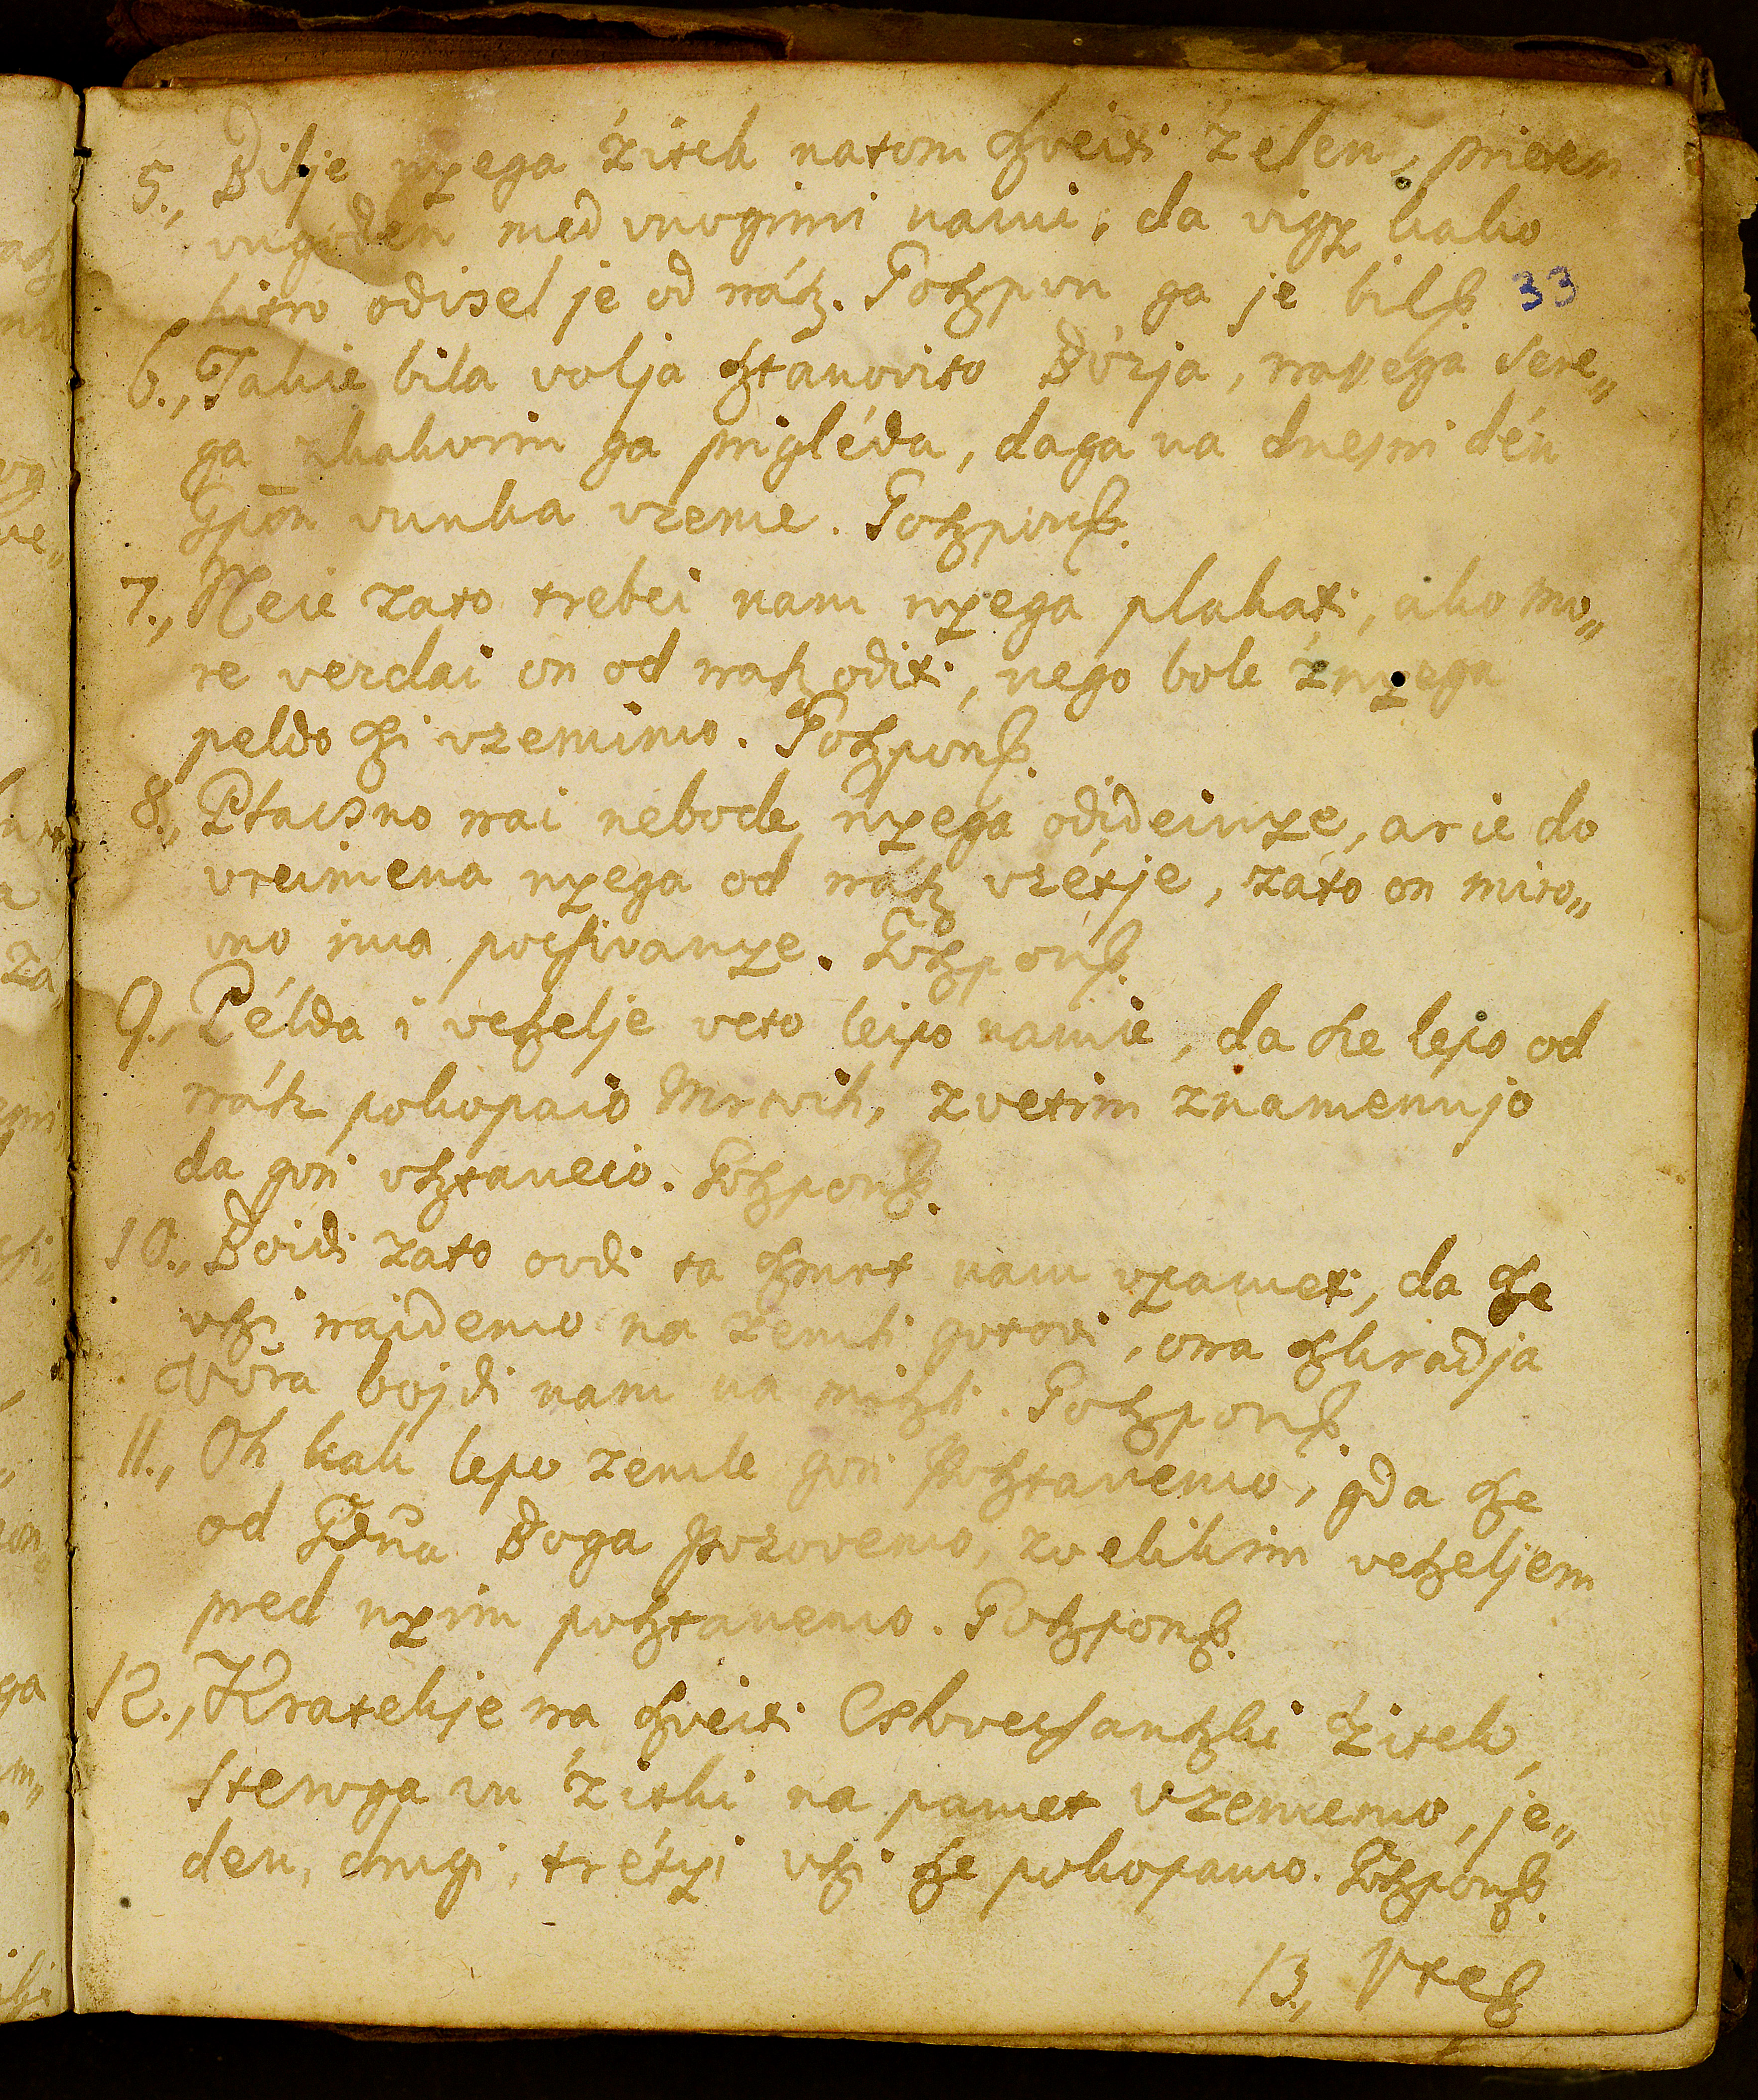 5., Bilje nyega žitek natom szveiti zelen, prieten
vugoden med mnogimi nami, da vigy kako
hitro odisel je od nász. Goszpon ga je bil etc.
33
6., Takie bila volja sztanovito Bo'zja, nassega Sere„
ga zkakvim ga prigléda, daga na dnesni dén
Gpōn vunka vzeme. Goszpon etc.
7., Neie zato trebei nam nyega plakati, ako mo„
re verdai on od nasz oditi, nego bole žnyega
peldo szi vzemimo. Goszpon etc.
8., Ptacsno nai nebode nyega odideinye, ar ie do
vreimena nyega od nász vzétje, zato on miro„
vno ima pocsivanye. Goszpon etc.
9., Példa i veszelje veto leipo namie, da sze lepo od
nász pokopaio Mrtvih, zvetim znamenujo
da gori vsztaneio. Goszpon etc.
10., Boidi zato ovdi ta szmrt nam vpamet, da sze
vszi naidemo na zemli gotovi, ona szkradja
Vöra bojdi nam na miszli. Goszpon etc.
11., Oh kak lepo zemle gori posztanemo, gda sze
od Gdna Boga pozovemo, zvelikim veszeljem
pred nyim posztanemo. Goszpon etc.
12., Kratekje na szveiti Cslovecsanszki žitek,
steroga vu žitki na pamet vzememo, je„
den, drugi, trétyi vszi sze pokopamo. Goszpon etc.
13., Vre etc.